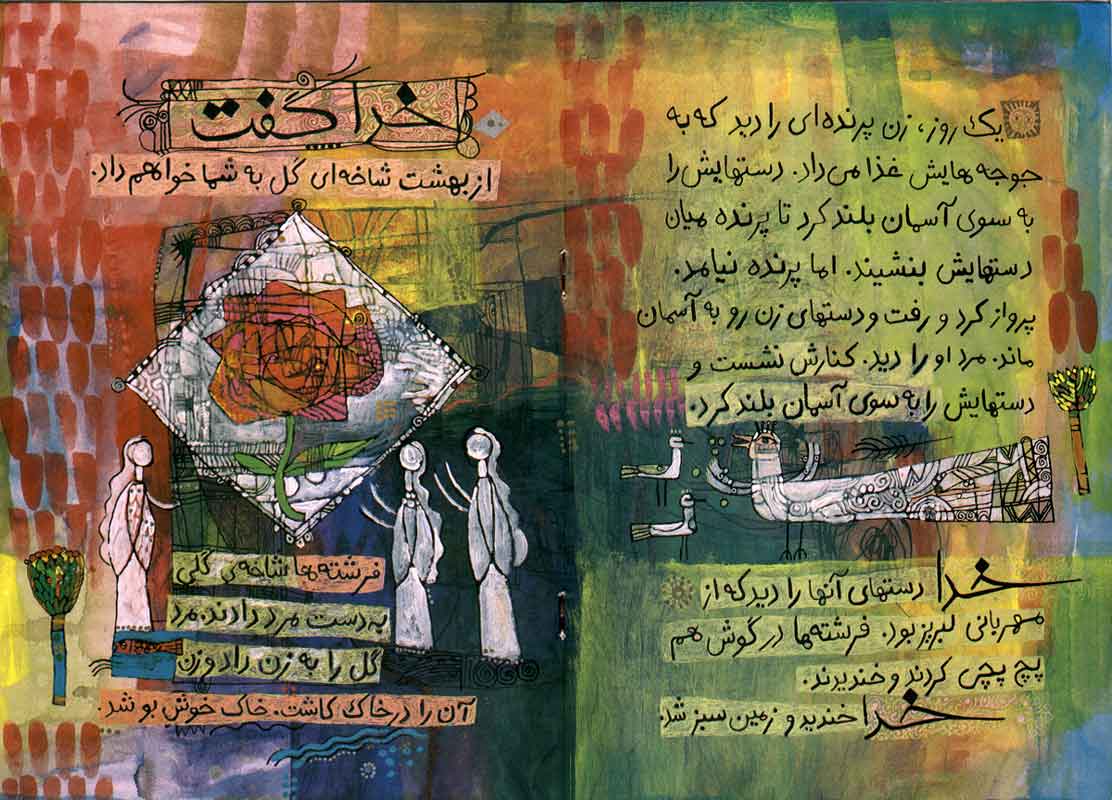 یک روز، زن پرنده‌ای را دید که به
جوجه هایش غذا می‌داد. دستهایش را
به سوی آسمان بلند کرد تا پرنده میان
دستهایش بنشیند. اما پرنده نیامد.
پرواز کرد و رفت و دستهای زن رو به آسمان
ماند. مرد او را دید. کنارش نشست و
دستهایش را به سوی آسمان بلند کرد.
خدا دستهای آنها را دید که از
مهربانی لبریز بود. فرشته‌ها در گوش هم
پچ پچی کردند و خندیدند.
خدا خندید و زمین سبز شد.
خدا گفت
از بهشت شاخه‌ای گل به شما خواهم داد.
فرشته‌ها شاخه‌ی گلی
به دست مرد دادند. مرد
گل را به زن داد و زن
آن را در خاک کاشت. خاک خوش بو شد.